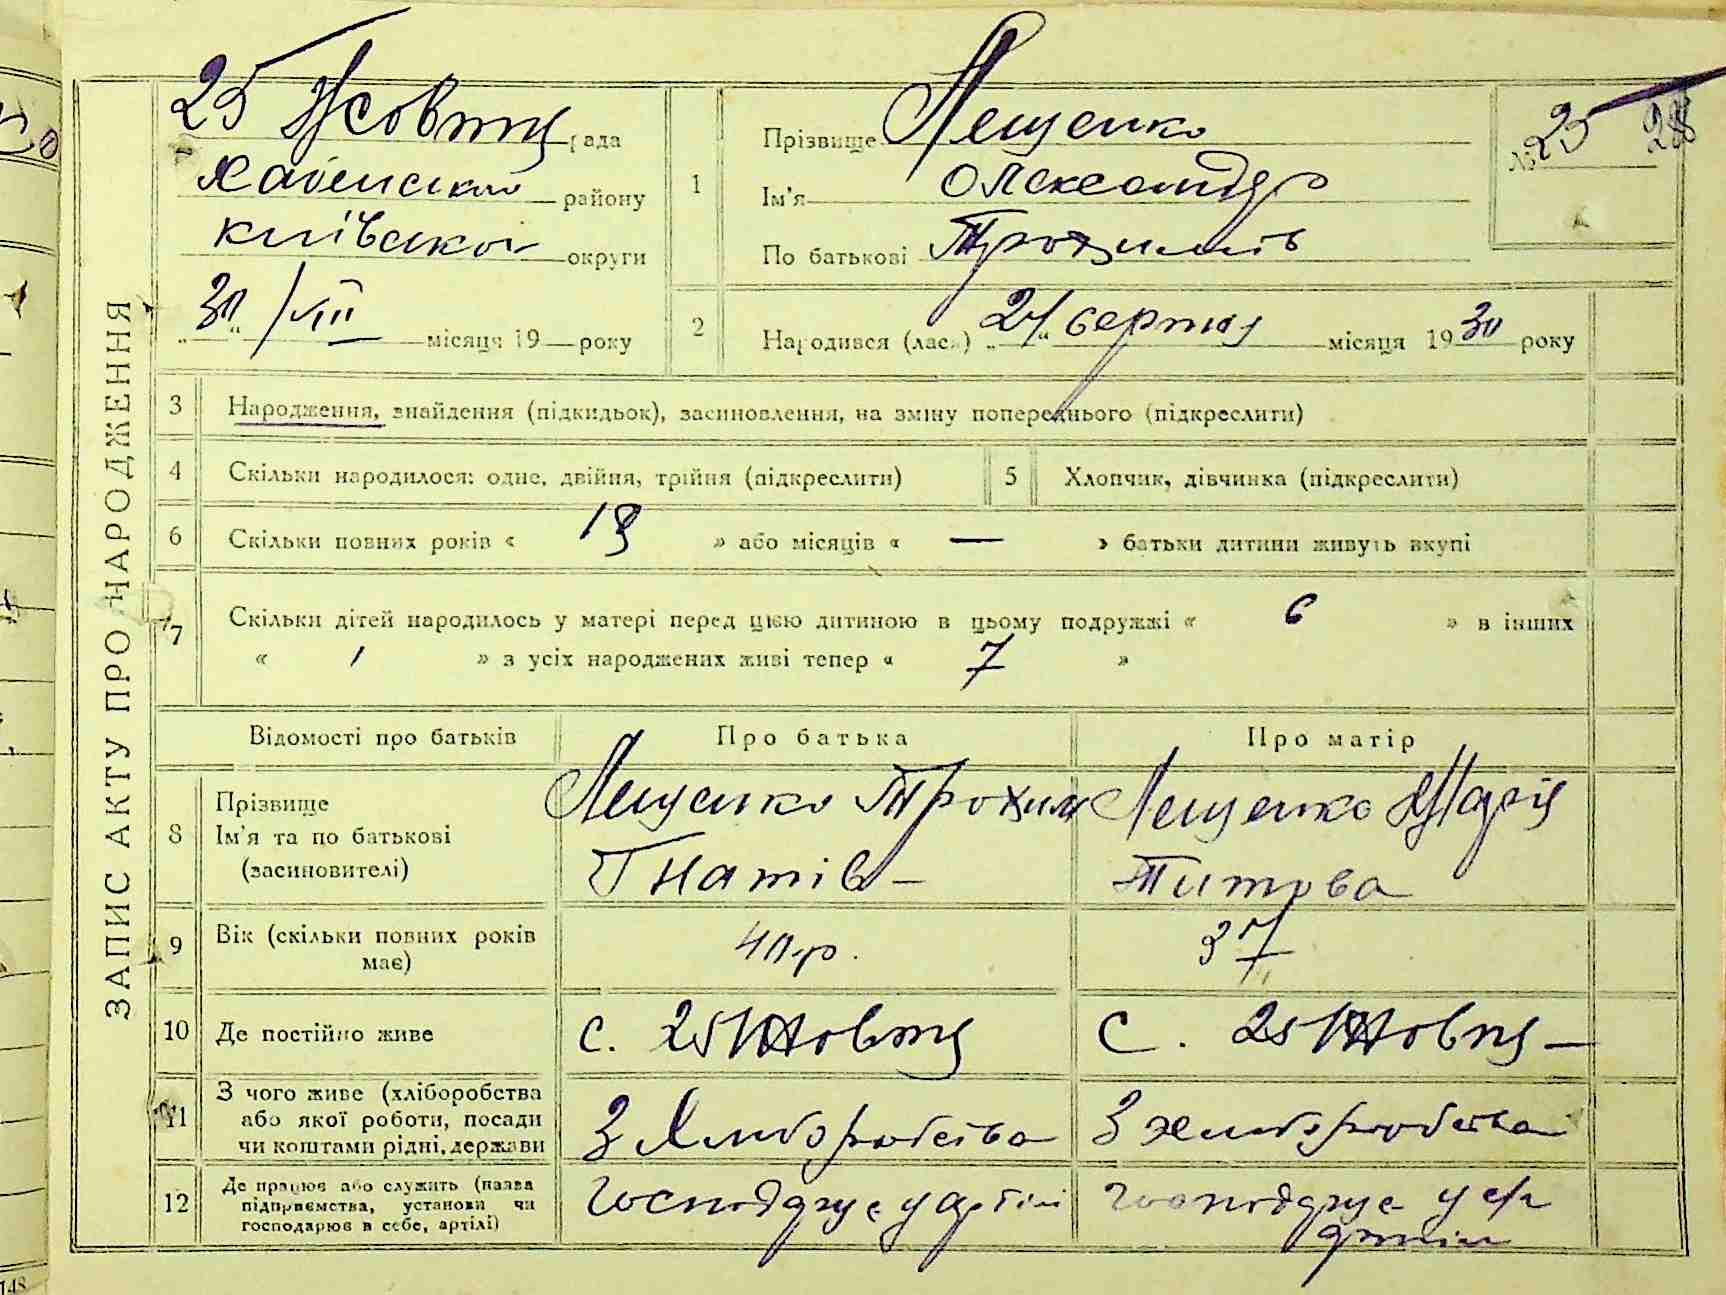 ЗАПИС АКТУ ПРО НАРОДЖЕННЯ
25 Жовтня рада
району
Київської округи
„30“ / VIII місяця 19 року
1
Прізвище Лещенко
Ім'я Олександр
По батькові Трохимів
№ 25
288
2
Народився (лася) „24“ серпня місяця 1930 року
3
Народження, знайдення (підкидьок), засиновлення, на зміну попереднього (підкреслити)
4
Скільки народилося: одне, двійня, трійня (підкреслити)
5
Хлопчик, дівчинка (підкреслити)
6
Скільки повних років « » або місяців « — » батьки дитини живуть вкупі
7
Скільки дітей народилось у матері перед цією дитиною в цьому подружжі « 6 » в інших
« 1 » з усіх народжених живі тепер « 7 »
Відомості про батьків
Про батька
Про матір
8
Прізвище
Ім'я та по батькові
(засиновителі)
Лещенко Трохим
Гнатів –
Лещенко Марія
Титова
9
Вік (скільки повних років
має)
40 р.
37
10
Де постійно живе
с. 25 Жовтня
с. 25 Жовтня –
11
З чого живе (хліборобства
або якої роботи, посади
чи коштами рідні, держави
З хліборобства
З хліборобства
12
Де працює або служить (назва
підприємства, установи чи
господарює в себе, артілі)
Господарує у артілі
Господарує у
артілі
148